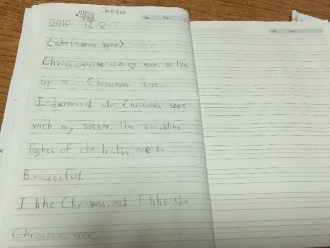 2015 12.8
Christmas tree
Christmas is coming soon, so I put
up a Christmas tree.
I decorated the Christmas tree
with my sister. The twinkling
lights of the bulbs are so
Beautiful.
I like Chrismas, and I like the
Christmas tree.